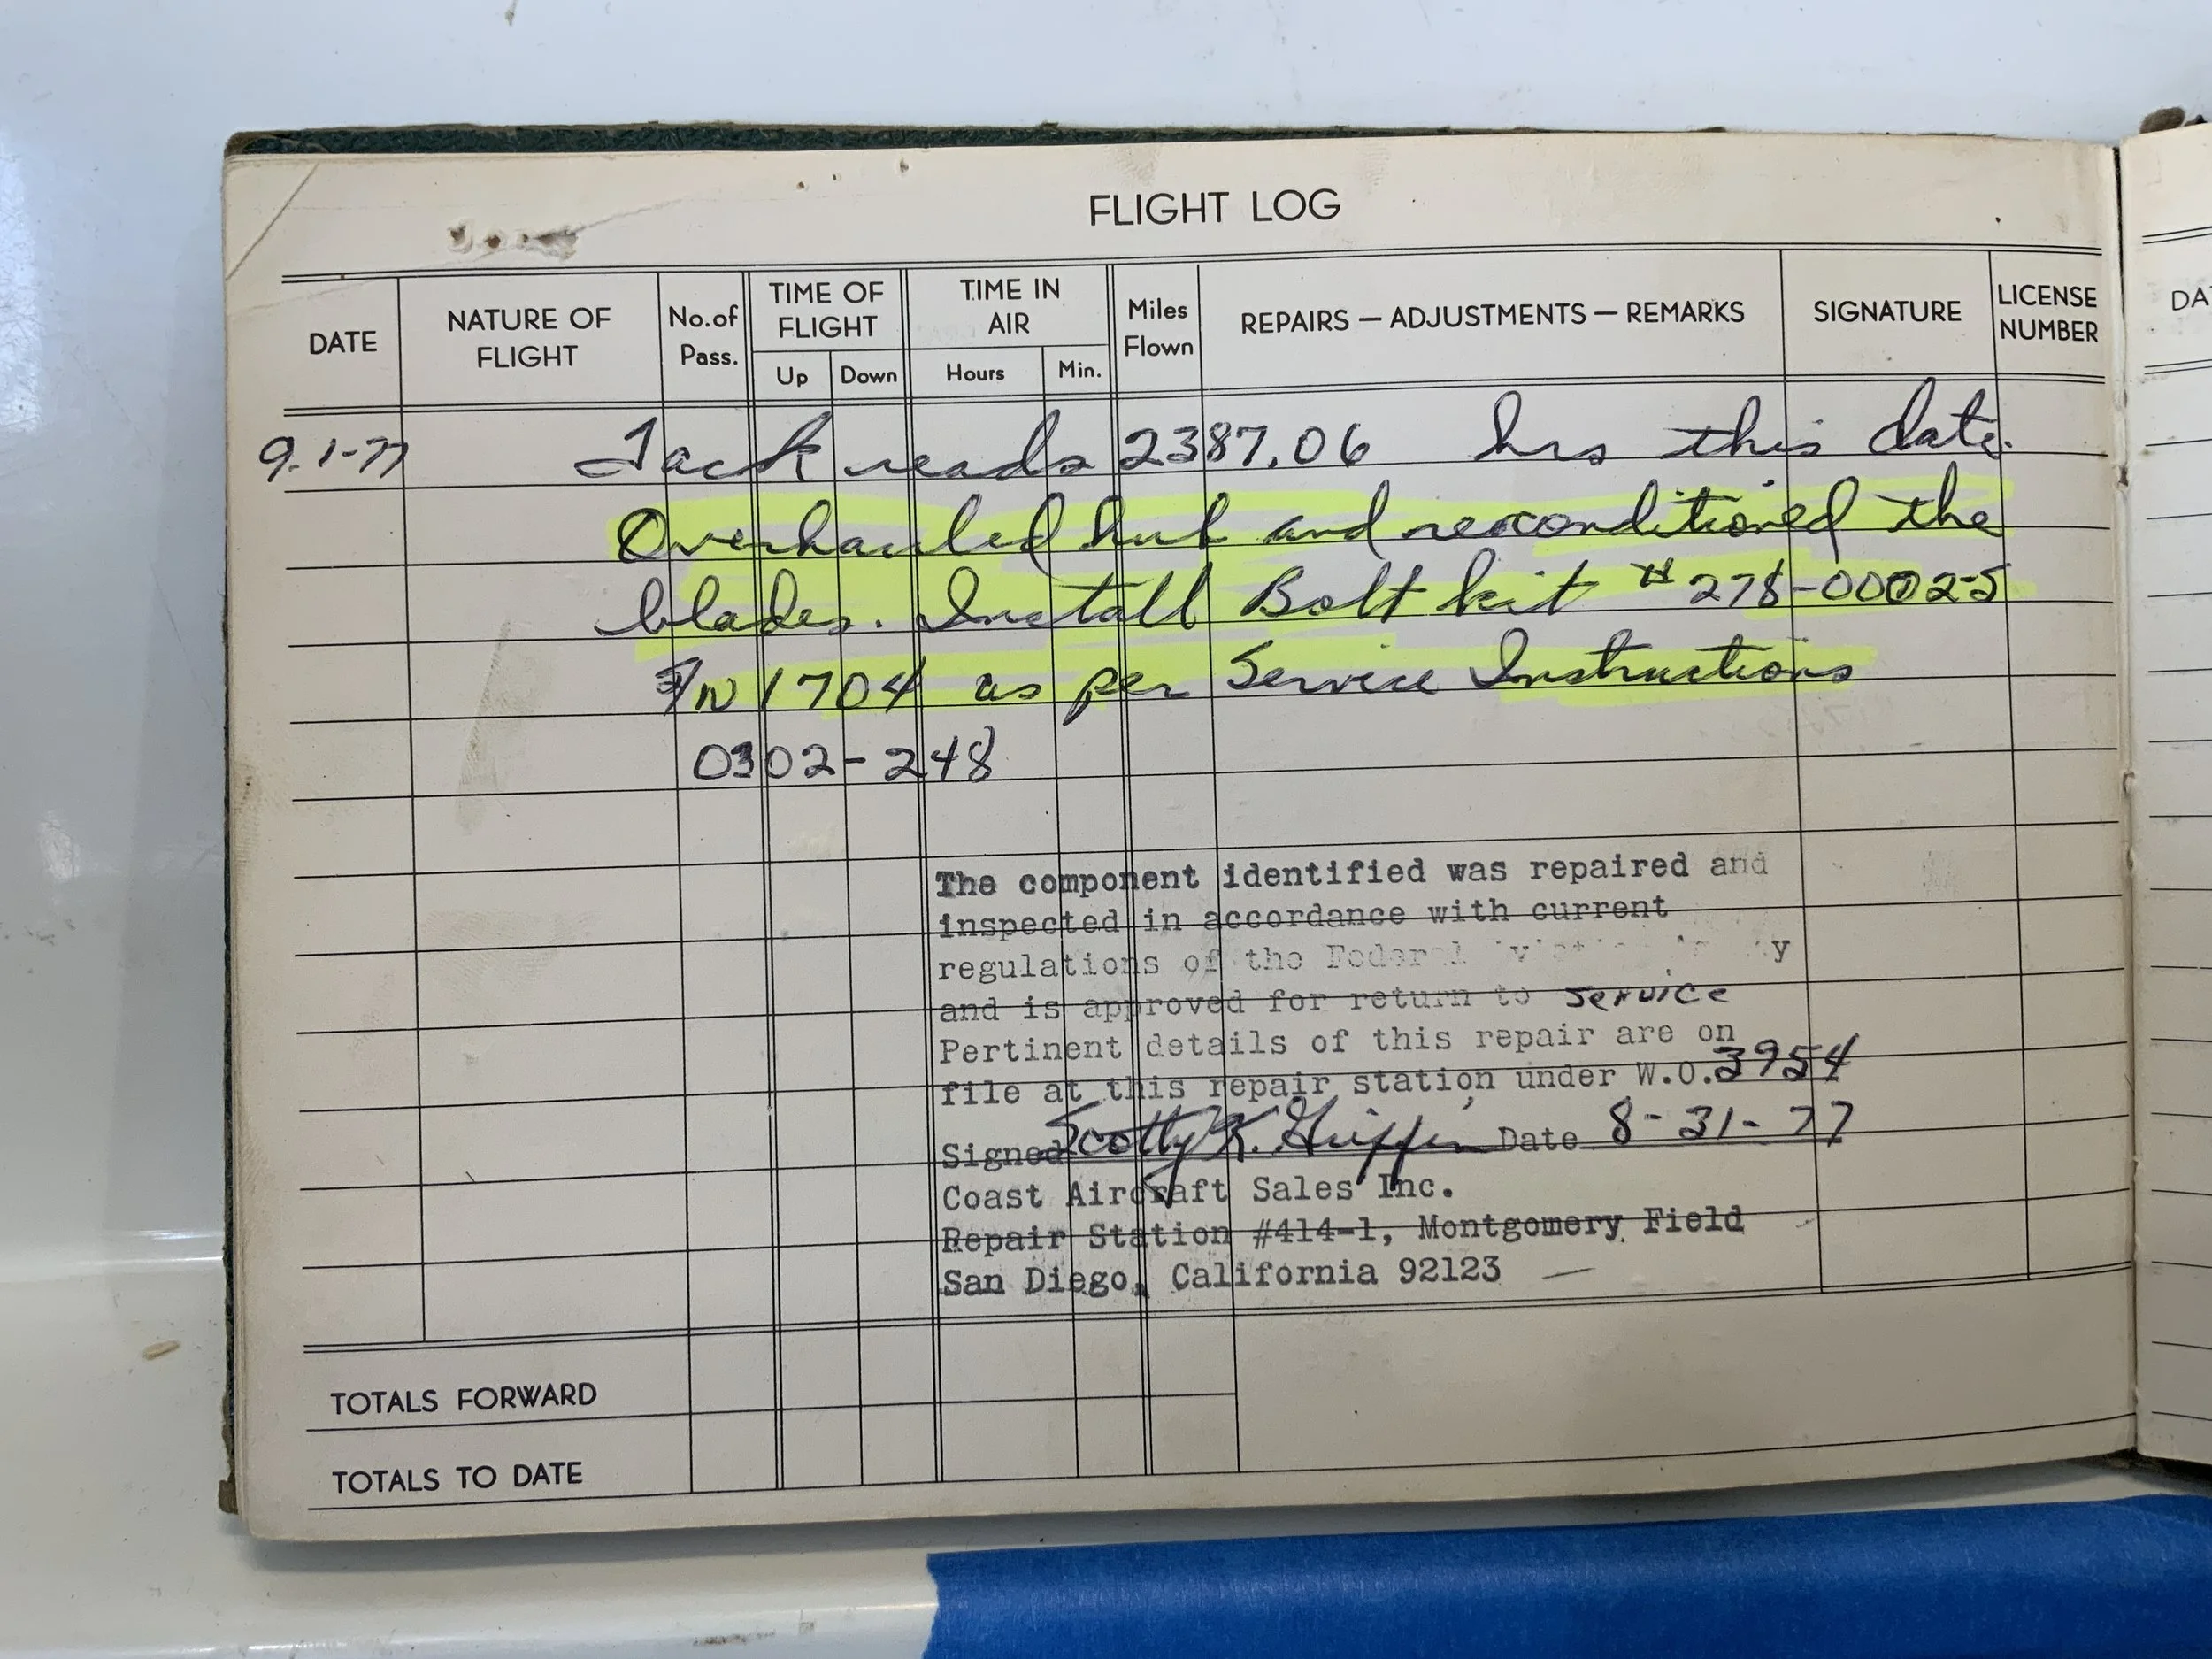 FLIGHT LOG
DATE
NATURE OF FLIGHT
No. of Pass.
TIME OF FLIGHT
Up
Down
TIME IN AIR
Hours
Min.
Miles Flown
REPAIRS — ADJUSTMENTS — REMARKS
SIGNATURE
LICENSE NUMBER
DA
9-1-77 Tack reads 2387.06 hrs this date.
Overhauled hub and reconditioned the
blades. Install Bolt kit # 278-0002-5
S/N 1704 as per Service Instructions
0302-248
The component identified was repaired and
inspected in accordance with current
regulations of the Federal
and is approved for return to service
Pertinent details of this repair are on
file at this repair station under W.O. 3954
Signed Scotty K. Griffin Date 8-31-77
Coast Aircraft Sales Inc.
Repair Station #414-1, Montgomery Field
San Diego, California 92123
TOTALS FORWARD
TOTALS TO DATE